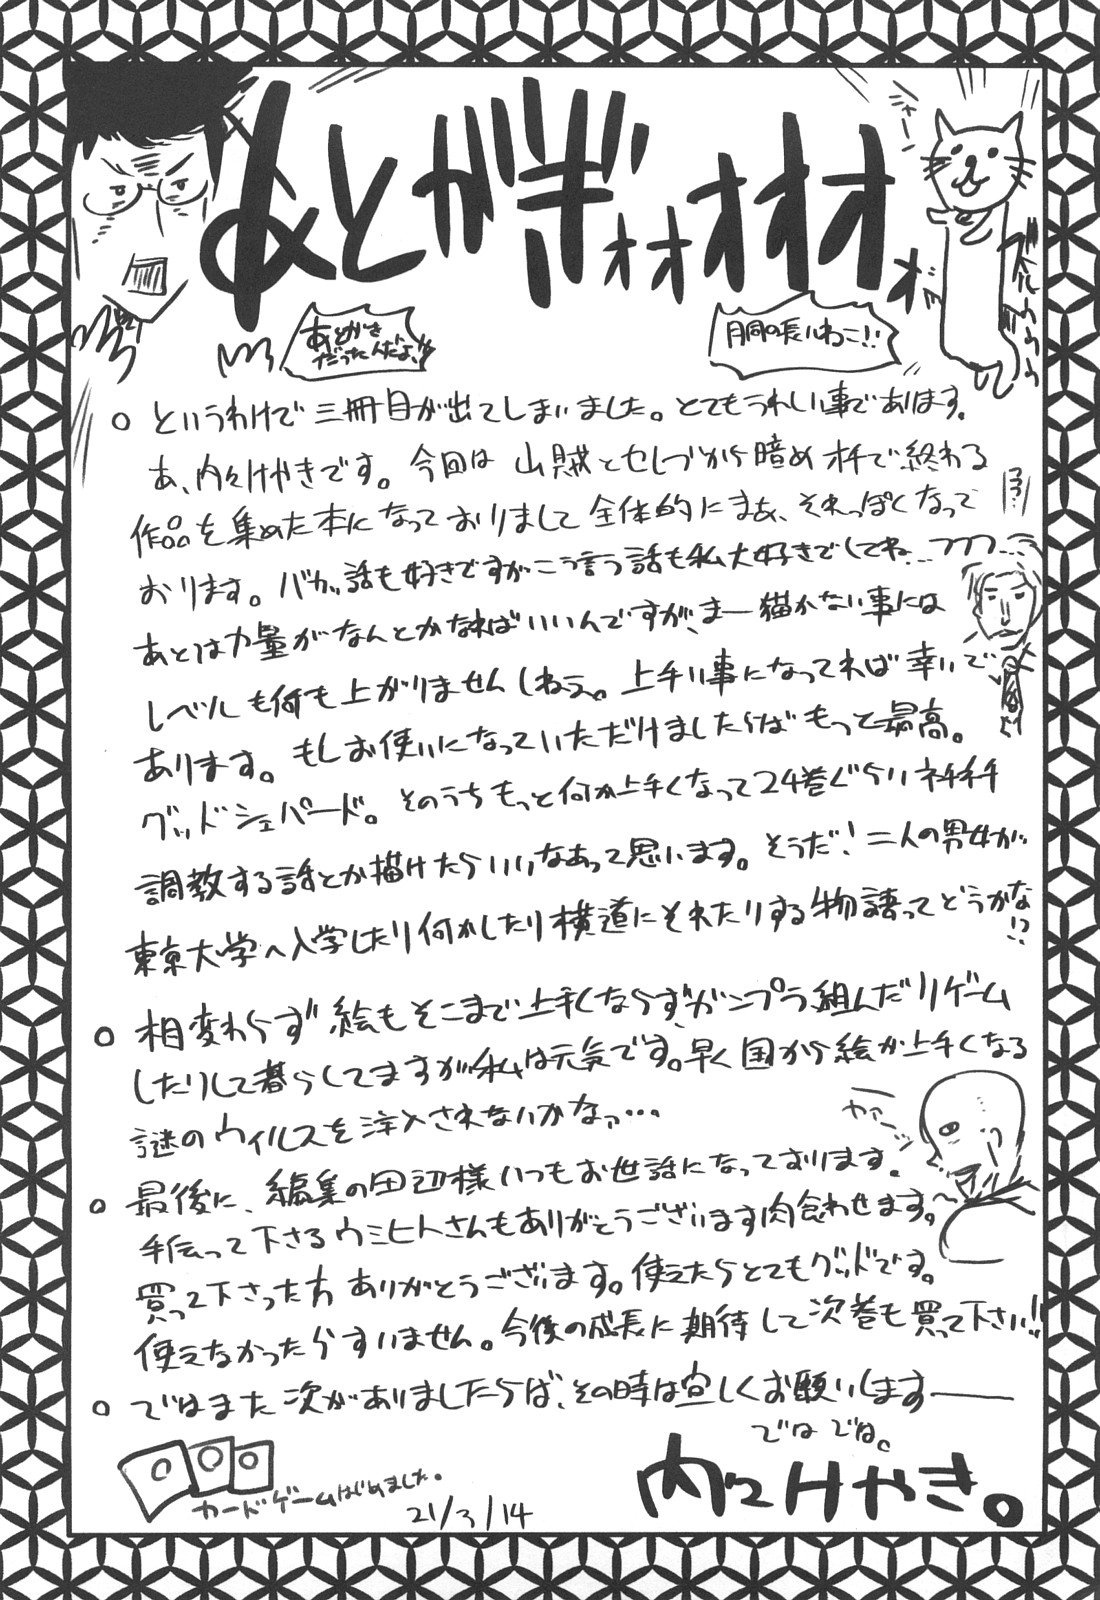 あとがぎォオオオオオッ
ギャー
あとがき
だったんだよ!!
胴の長いねこ!!
。というわけで三冊目が出てしまいました。とてもうれしい事であります。
あ、内々けやきです。今回は 山賊とセレブから暗めオチで終わる
作品を集めた本になっておりまして全体的にまぁ、それっぽくなって
おります。バカ話も好きですがこう言う話も私大好きでしてね…フフフ…
あとは力量がなんとかなればいいんですが、まー描かない事には
レベルも何も上がりませんしねぇ。上手い事になってれば幸いで
あります。もしお使いになっていただけましたらばもっと最高。
グッドシェパード。そのうちもっと何か上手くなって24巻ぐらいネチネチ
調教する話とか描けたらいいなあって思います。そうだ!二人の男女が
東京大学へ入学したり何かしたり横道にそれたりする物語ってどうかな!?
。相変わらず絵もそこまで上手くならず、ガンプラ組んだりゲーム
したりして暮らしてますが私は元気です。早く国から絵が上手くなる
謎のウィルスを注入されないかなァ…
。最後に、編集の田辺様いつもお世話になっております。
手伝って下さるウミヒトさんもありがとうございます肉食わせます。
買って下さった方ありがとうございます。使えたらとてもグッドです。
使えなかったらすいません。今後の成長に期待して次巻も買って下さい!!
。ではまた次がありましたらば、その時は宜しくお願いします――
ではでは。
内々けやき。
カードゲームはじめました。
21/3/14